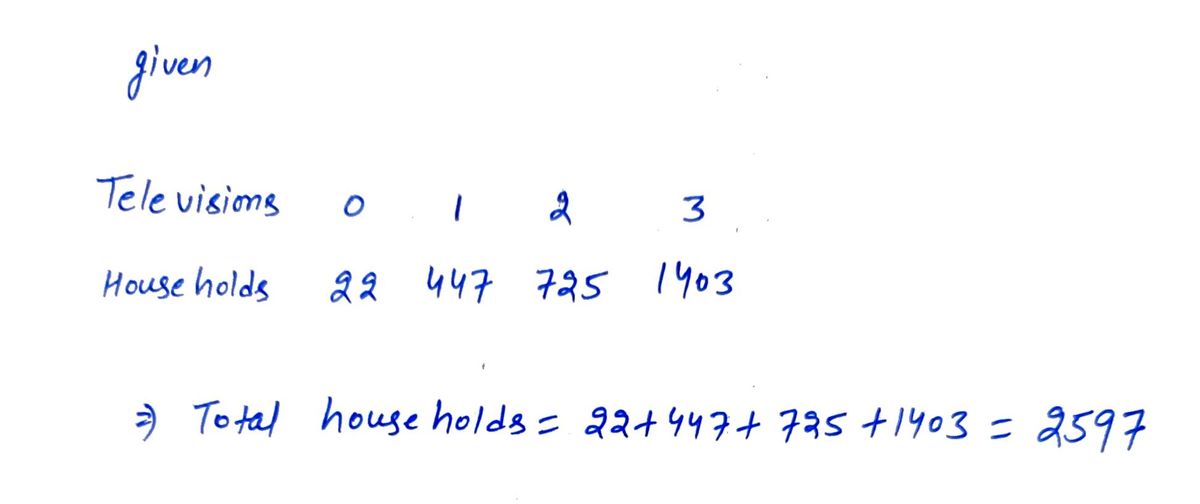 given
Televisions 0 1 2 3
Households 22 447 725 1403
⇒ Total households = 22+447+725+1403 = 2597